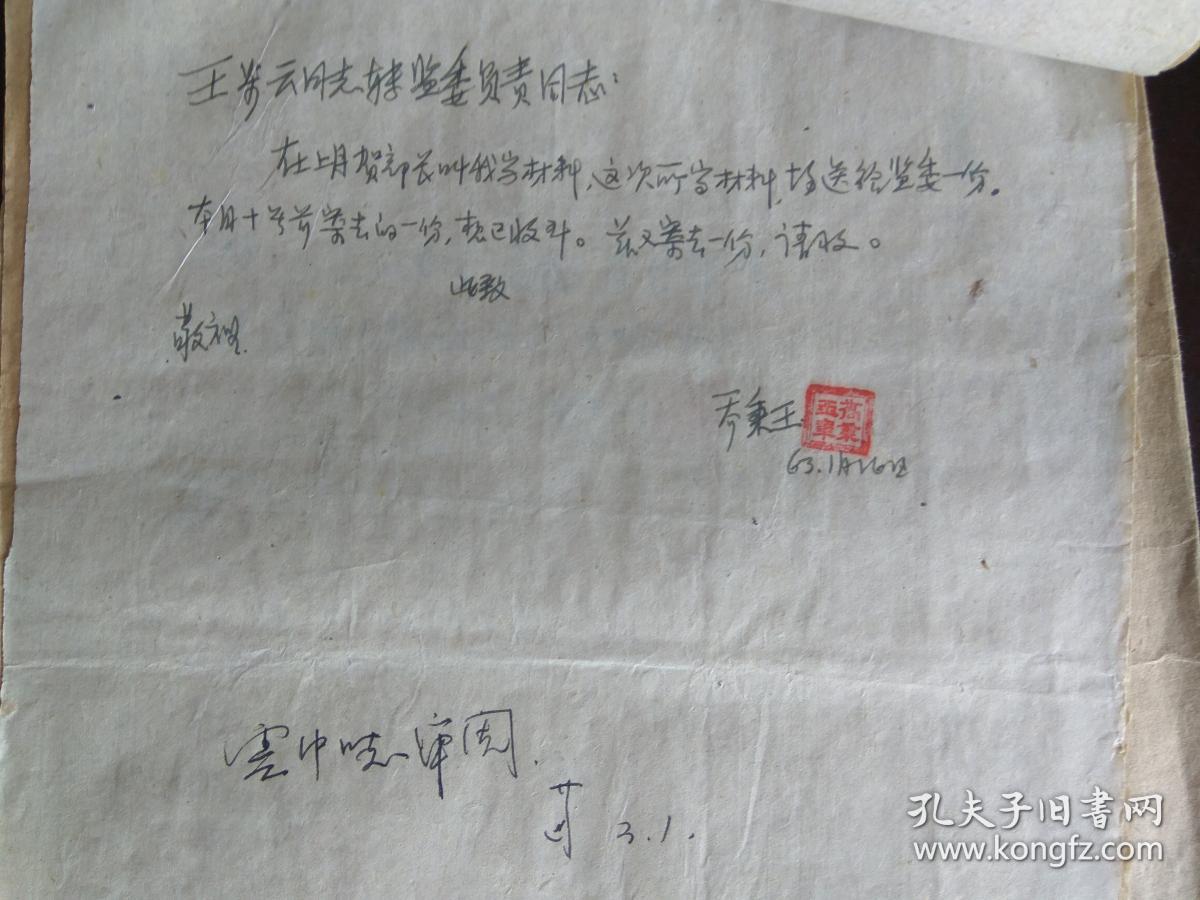 王苓云同志转监委负责同志:
在上月贺部长叫我写材料,这次所写材料,均送给监委一份。
本月十号前寄去的一份,想已收到。兹又寄去一份,请收。
此致
敬礼
乔秉王
63.1月26日
审阅.
3.1.
孔夫子旧书网
www.kongfz.com